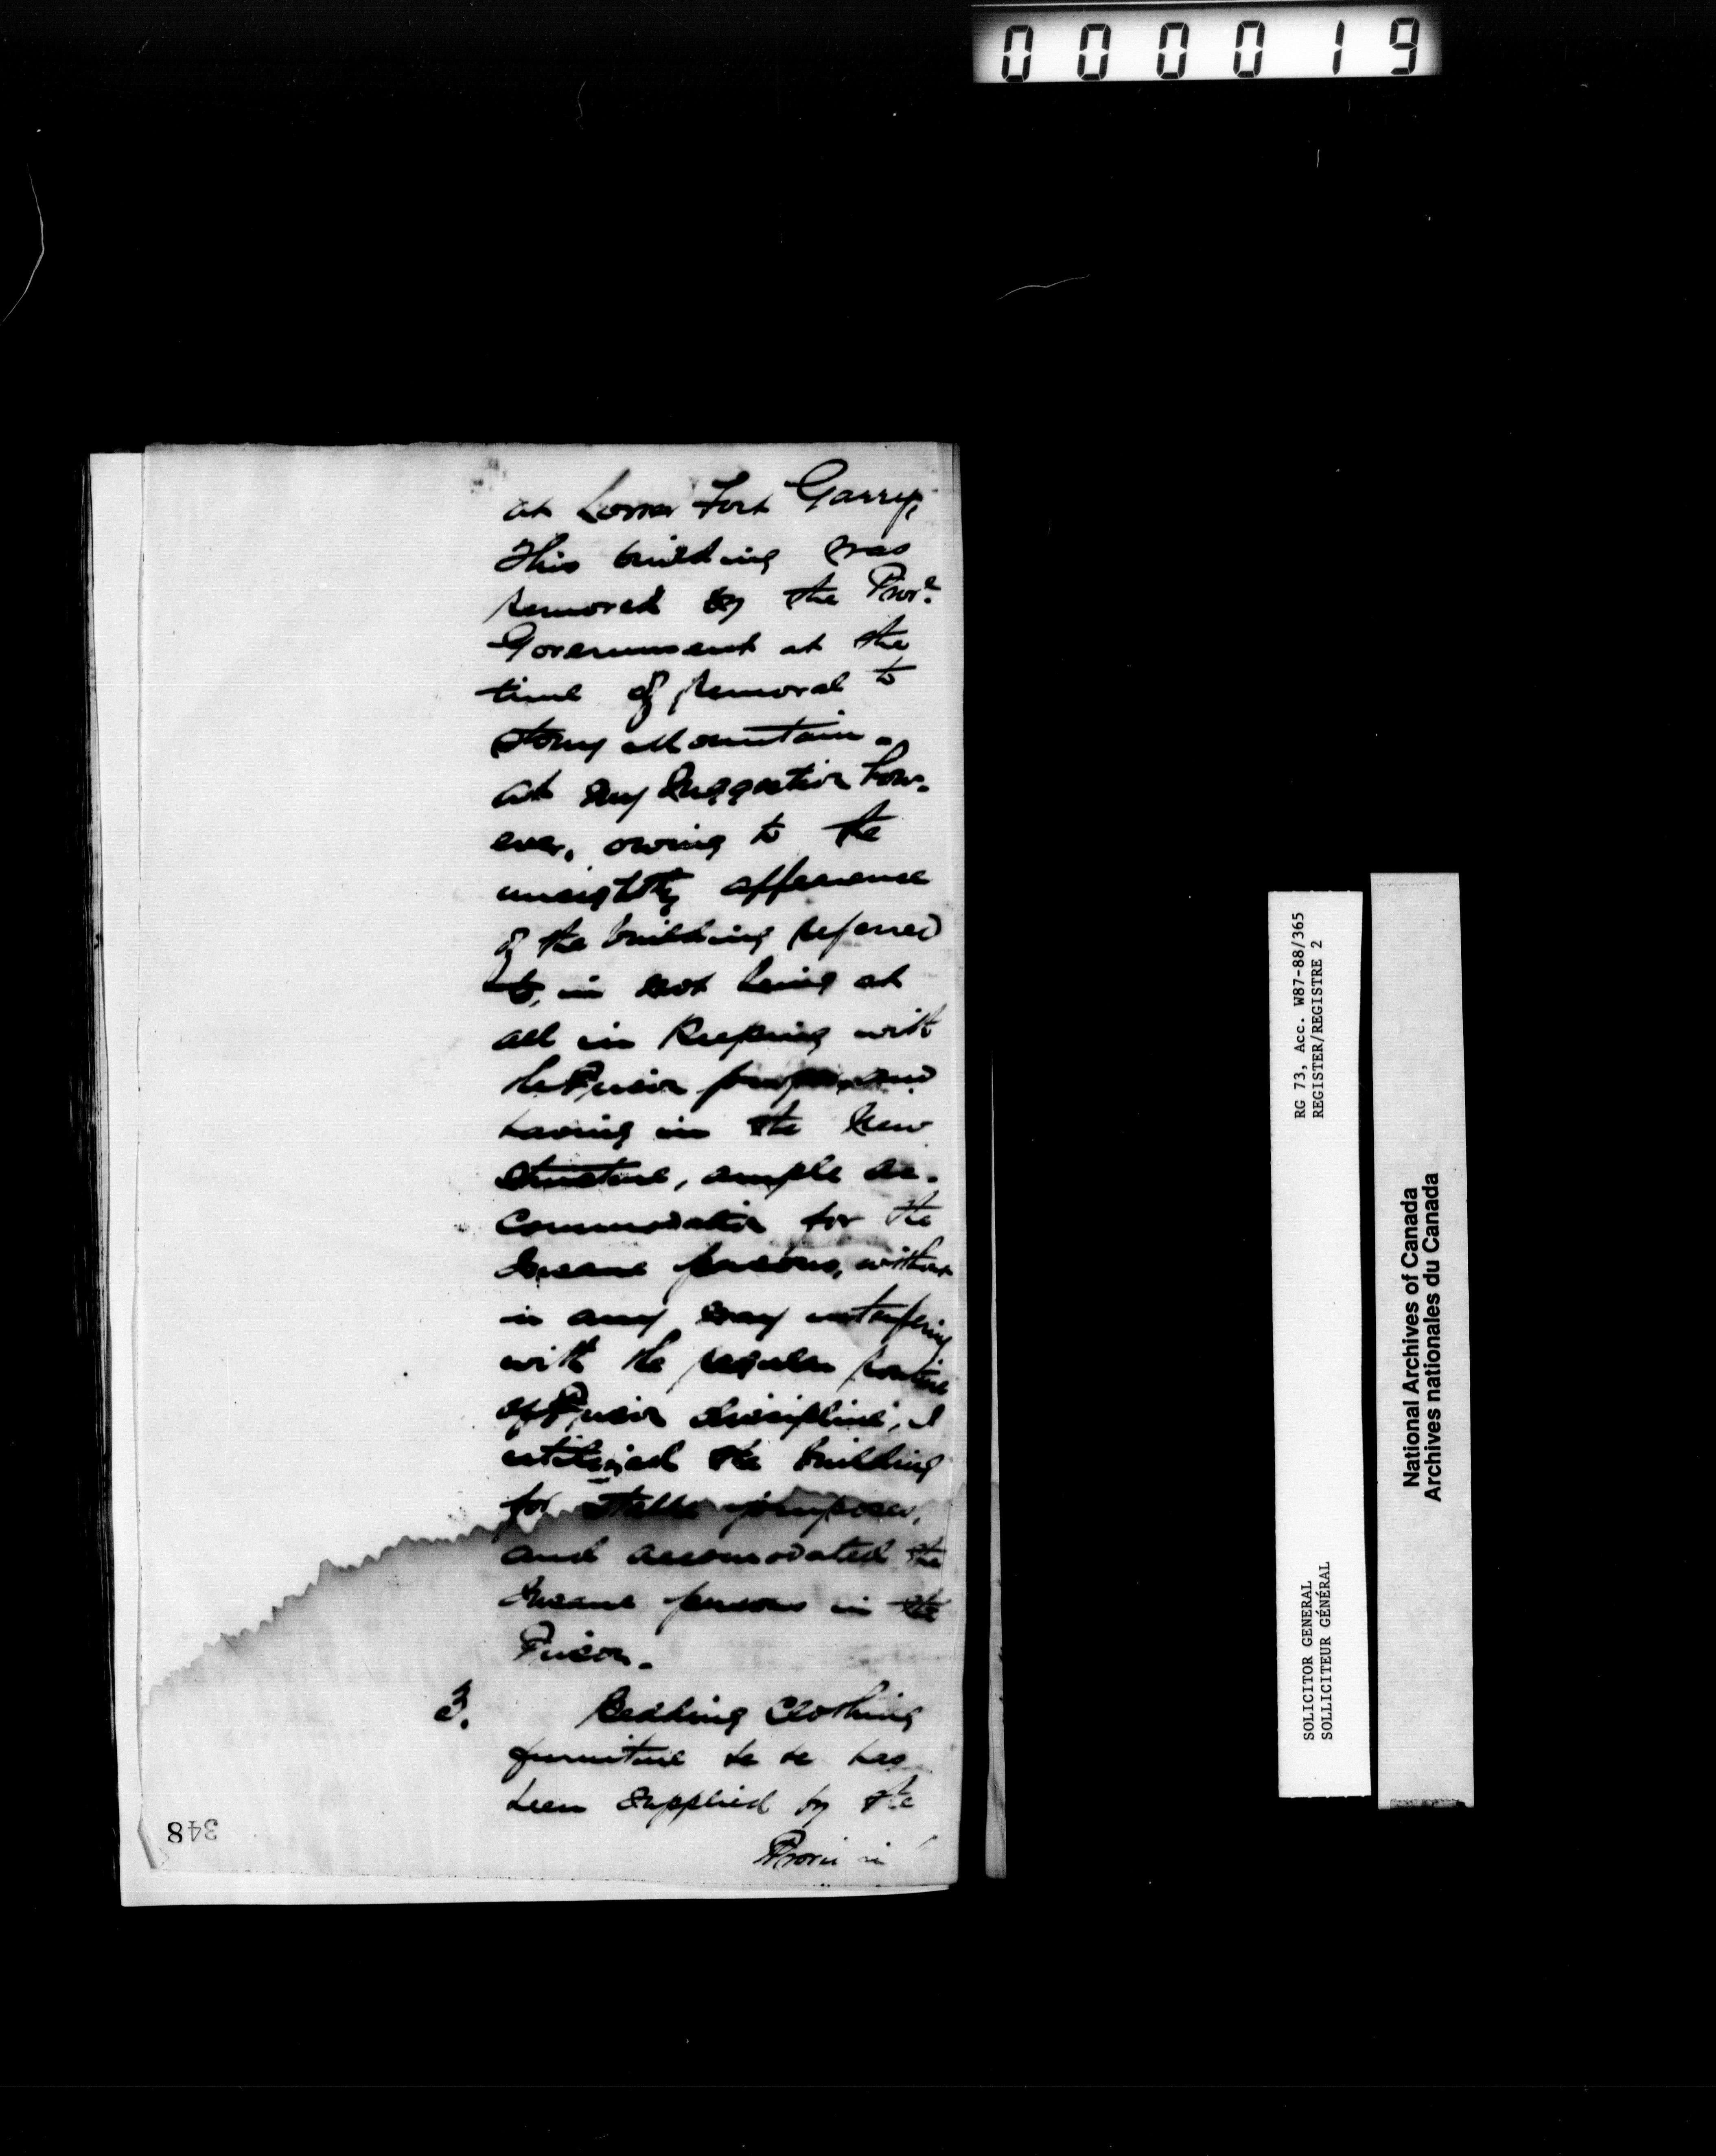 000019
at Lower Fort Garry,
This building was
removed by the Prov?
Government at the
time of removal to
Stony Mountain.
At my suggestion how-
ever, owing to the
unsightly appearance
of the building referred
to, in not being at
all in keeping with
the Prison proper, and
having in the new
structure, ample ac-
commodation for the
Insane persons, without
in any way interfering
with the regular routine
of Prison discipline, I
utilized the building
for stable purposes,
and accomodated the
Insane persons in the
Prison.
3. Bedding Clothing
furniture &c &c has
been supplied by the
348
RG 73, Acc. W87-88/365
REGISTER/REGISTRE 2
SOLICITOR GENERAL
SOLLICITEUR GÉNÉRAL
National Archives of Canada
Archives nationales du Canada